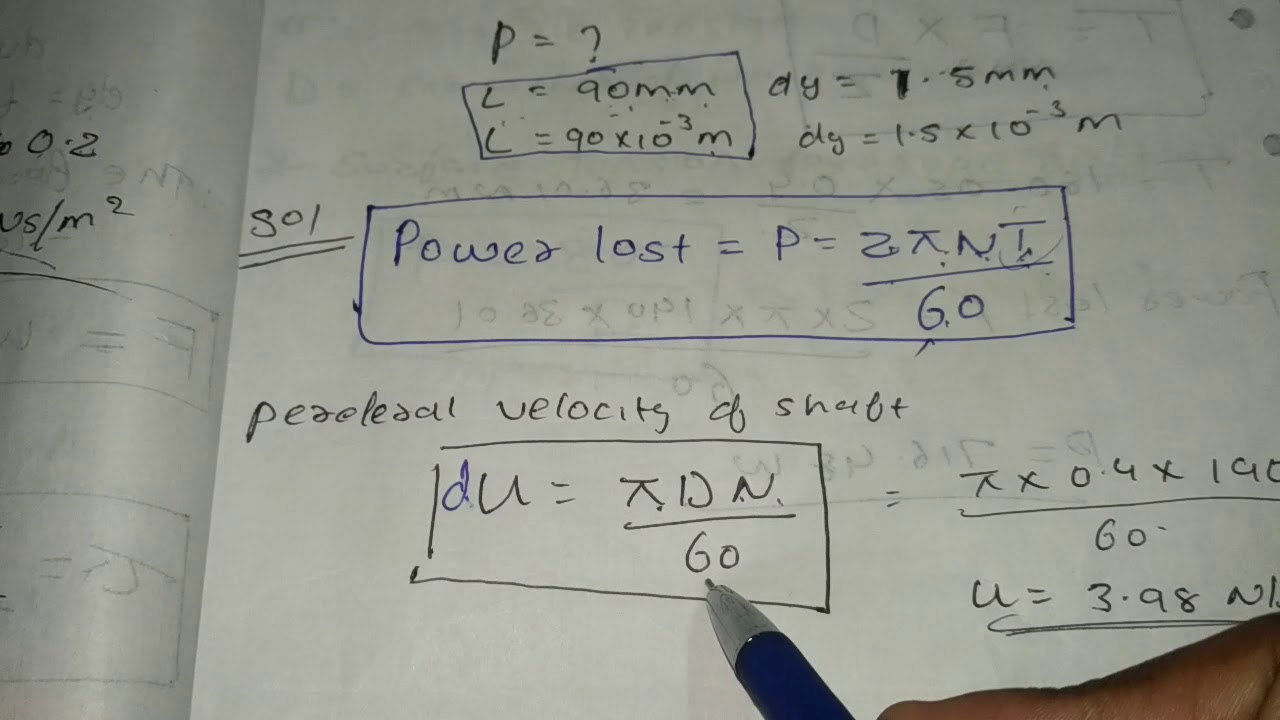 P = ?
L = 90mm
dy = 1.5mm
L = 90×10⁻³m
dy = 1.5×10⁻³m
0.2
/m²
Sol
Power lost = P = 2πNT
60
pereleral velocity of shaft
dU = πDN
60
= π × 0.4 × 190
60
U = 3.98